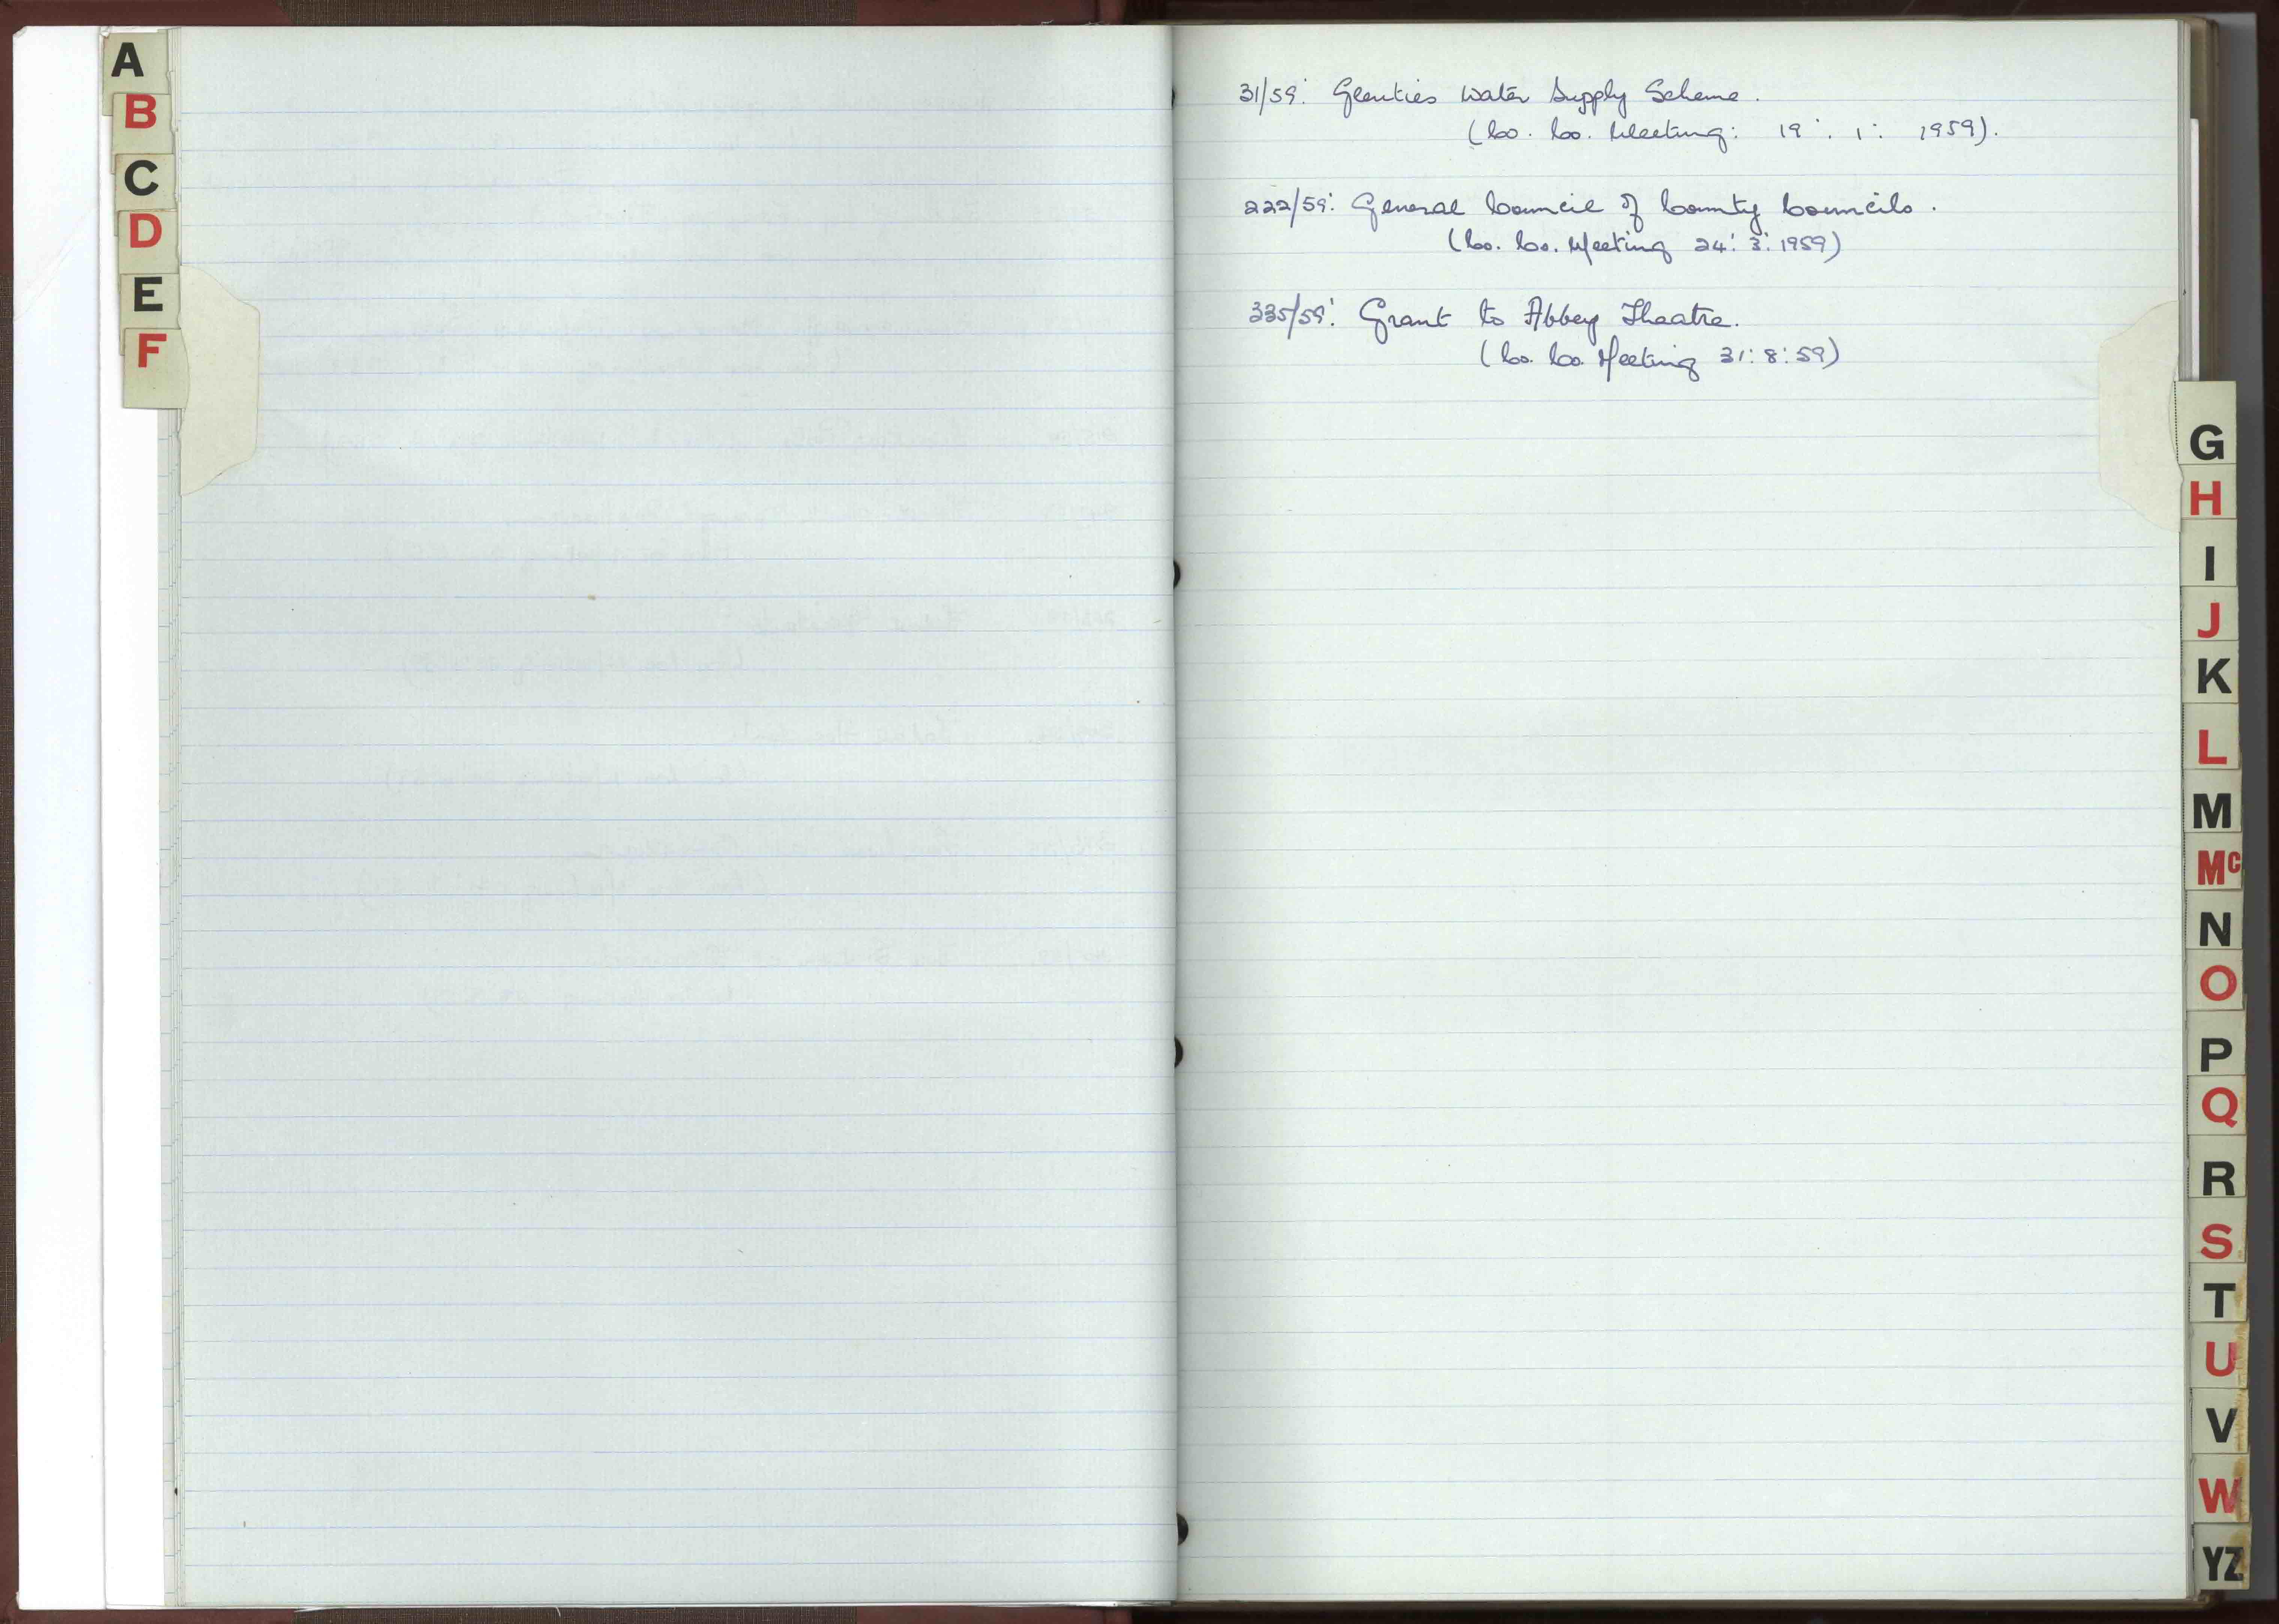 A
B
C
D
E
F
31/59: Glenties Water Supply Scheme.
(Co. Co. Meeting: 19: 1: 1959).
222/59: General Council of County Councils.
(Co. Co. Meeting 24: 3: 1959)
335/59: Grant to Abbey Theatre.
(Co. Co. Meeting 31: 8: 59)
G
H
I
J
K
L
M
Mc
N
O
P
Q
R
S
T
U
V
W
YZ